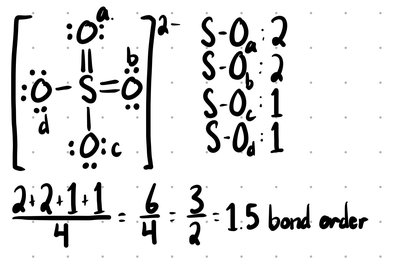 :O: a.
2-
b
:O - S = O:
d
:O: c
S-Oa: 2
S-Ob: 2
S-Oc: 1
S-Od: 1
2+2+1+1/4 = 6/4 = 3/2 = 1.5 bond order